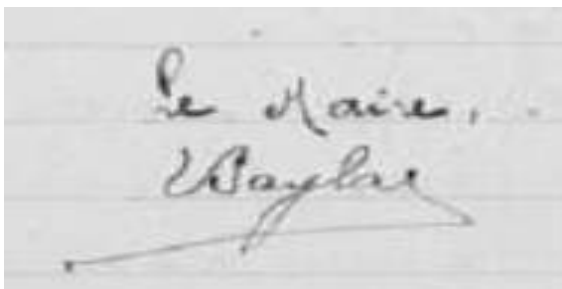 Le Maire,
Baylac